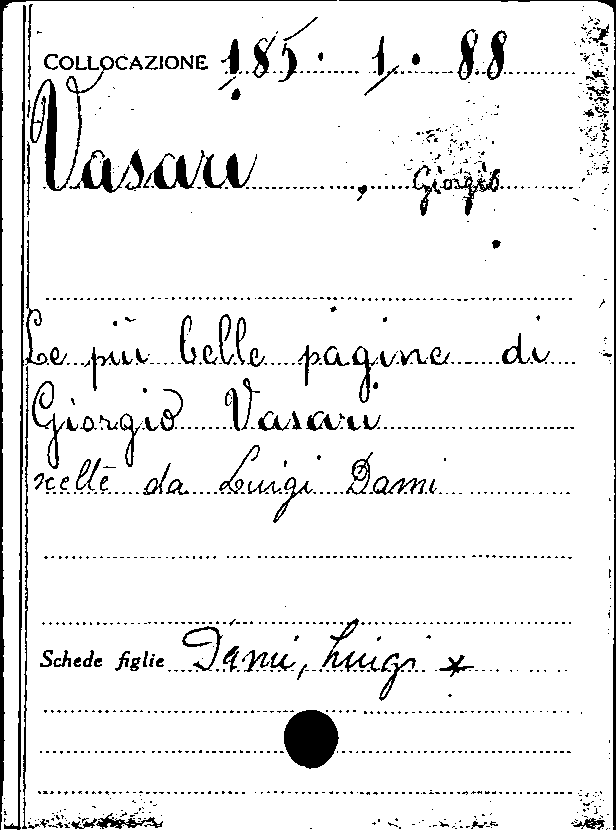 COLLOCAZIONE 185. 1. 88
Vasari, Giorgio.
Le più belle pagine di
Giorgio Vasari
scelte da Luigi Dami
Schede figlie Dami, Luigi *